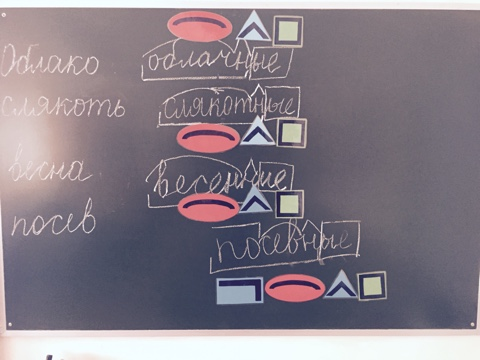 Облако облачные
слякоть слякотные
весна весенние
посев посевные